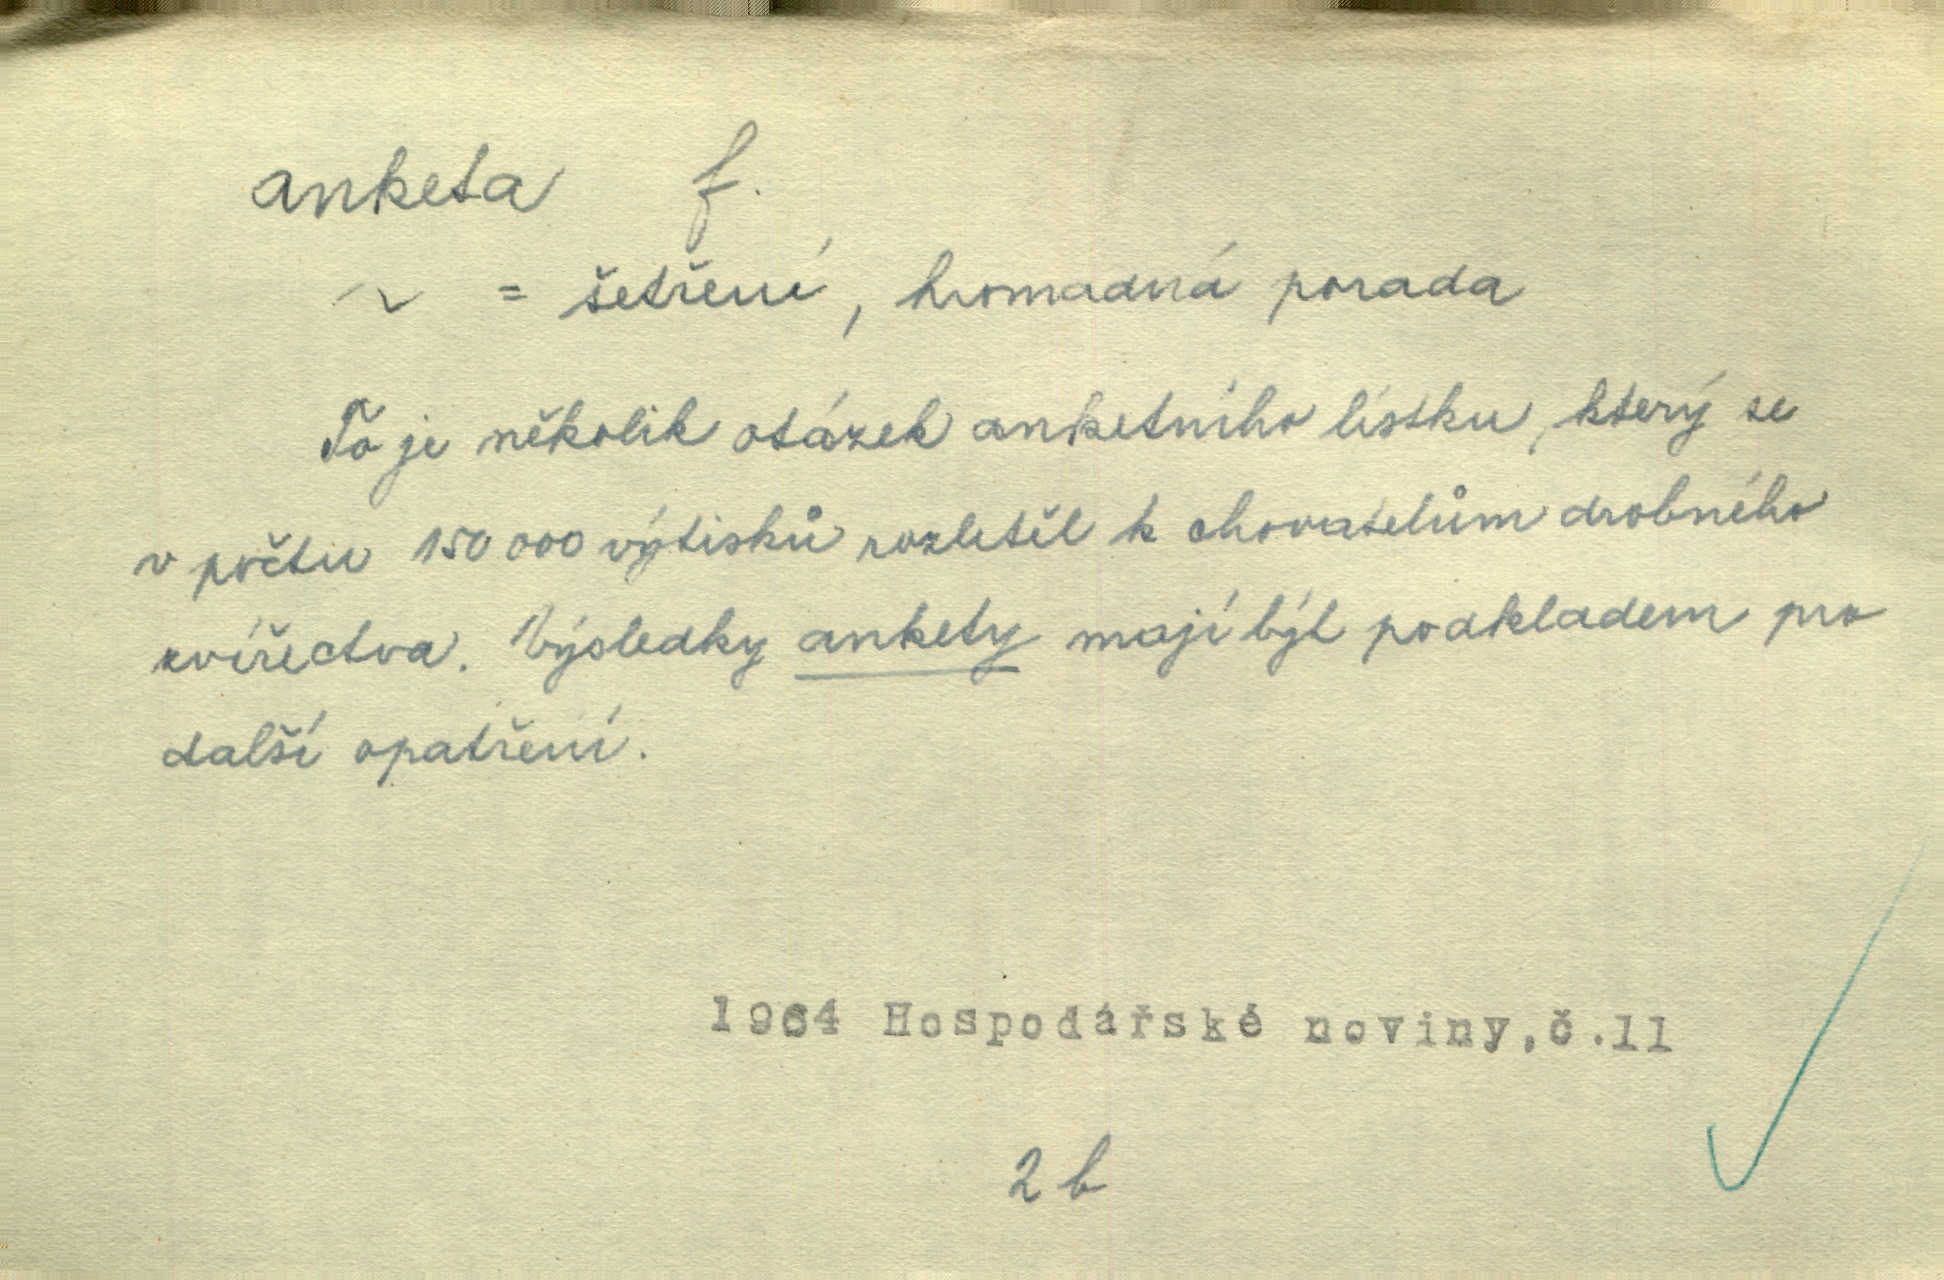 anketa f.
~ = šetření, hromadná porada
To je několik otázek anketního lístku, který se
v počtu 150 000 výtisků rozletěl k chovatelům drobného
zvířectva. Výsledky ankety mají být podkladem pro
další opatření.
1964 Hospodářské noviny,č.11
2 b